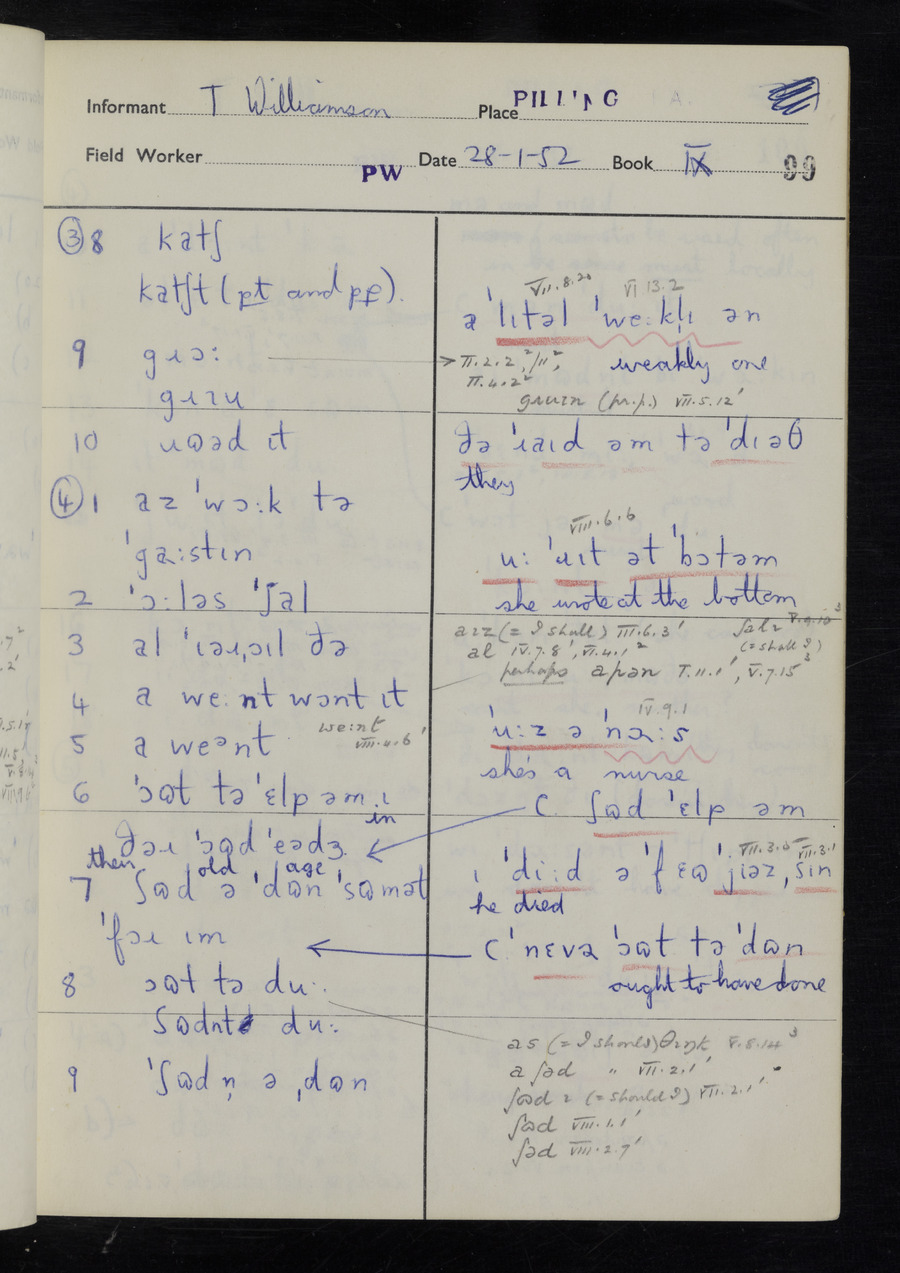 Informant T Williamson Place PILLING
Field Worker PW Date 28-1-52 Book IX 99
③ 8 katʃ
katʃt (pt and pp).
9 gɪɔ:
10 ɹɷəd ɪt
④ 1 az ˈwɔ:k tə
ˈga:stɪn
2 ˈɔ:ləs ˈʃal
3 al
4 a we:nt wənt ɪt
5 a weənt we:nt VIII.4.6'
6 ˈɔɷt tə ˈɛlp əm ɪ in
ðəɪ ˈɔɷd ˈeədʒ
then old age
7 ʃɷd ə ˈdɷn ˈsɷmət
ˈfɔɪ ɪm
8 ɔɷt tə du:.
ʃɷdnt du:
9 ˈʃɷdn̩ ə ˌdɷn
VII.8.20 VI 13.2
a ˈlɪtəl ˈwe:kl̩ɪ ən
weakly one
II.2.2², /II²,
II.4.2²
(pr.p.) VII.5.12'
ðə ˈɹaɪd əm tə ˈdɪəθ
they
VIII.6.6
u: ˈɹɪt ət ˈbɔtəm
she wrote at the bottom
aɪz (= I shall) III.6.3' ʃalɪ V.9.10³
al IV.7.8', VI.4.1² (= shall I)
perhaps apən I.11.1', V.7.15³
IV.9.1
ˈu:z ə ˈnɔ:s
she's a nurse
C. ʃɷd ˈɛlp əm
ɪ ˈdi:d ə ˈfɛɷ ˈjiəz, sin VII.3.1
he died
C ˈnɛvə ˈɔɷt tə ˈdɷn
ought to have done
as (= I should) θɪŋk V.8.14³
a ʃəd " VII.2.1'
ʃɷd ɪ (= should I) VII.2.1'
ʃɷd VIII.1.1'
ʃəd VIII.2.7'